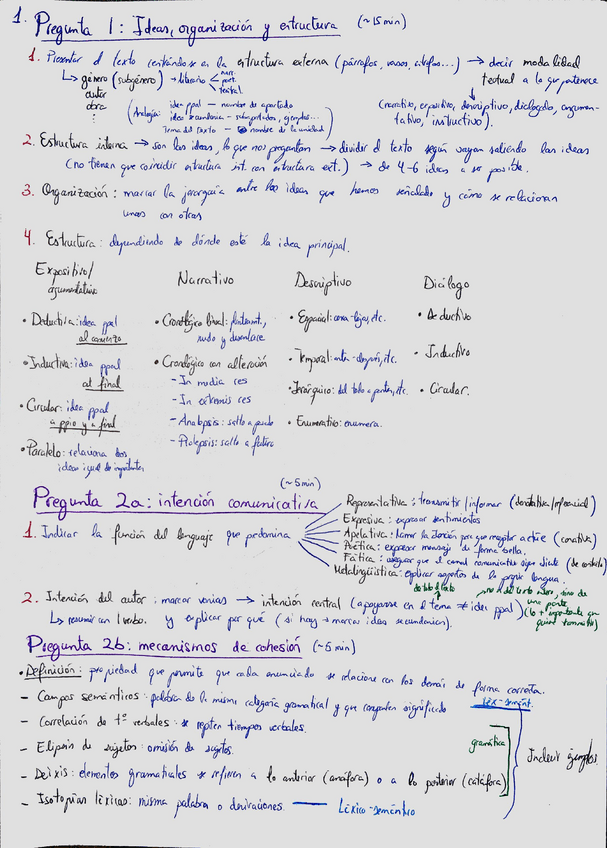 1. Pregunta 1: Ideas, organización y estructura (~15min)
1. Presentar el texto centrándose en la estructura externa (párrafos, versos, estrofas...) → decir modalidad
textual a la que pertenece
(narrativo, expositivo, descriptivo, dialogado, argumen-
tativo, instructivo).
↳ género (subgénero) → literario narr. poet. teatral
autor
obra
⋮
(Analogía: idea ppal – nombre de apartado
idea secundaria – subapartados, ejemplos...
Tema del texto – nombre de la unidad)
2. Estructura interna → son las ideas, lo que nos preguntan → dividir el texto según vayan saliendo las ideas
(no tienen que coincidir estructura int. con estructura ext.) → de 4-6 ideas a ser posible.
3. Organización: marcar la jerarquía entre las ideas que hemos señalado y cómo se relacionan
unas con otras
4. Estructura: dependiendo de dónde esté la idea principal.
Expositivo/
argumentativo
• Deductiva: idea ppal
al comienzo
• Inductiva: idea ppal
al final
• Circular: idea ppal
a ppio y a final
• Paralelo: relaciona dos
ideas igual de importantes
Narrativo
• Cronológico lineal: planteamit.,
nudo y desenlace
• Cronológico con alteración
- In media res
- In extremis res
- Analepsis: salto a pasado
- Prolepsis: salto a futuro
Descriptivo
• Espacial: cerca-lejos, etc.
• Temporal: antes-después, etc.
• Jerárquico: del todo a partes, etc.
• Enumerativo: enumera.
Diálogo
• Deductivo
• Inductivo
• Circular.
(~5min)
Pregunta 2a: intención comunicativa
1. Indicar la función del lenguaje que predomina
Representativa: transmitir/informar (denotativa/referencial)
Expresiva: expresar sentimientos
Apelativa: llamar la atención para que receptor actúe (conativa)
Poética: expresar mensaje de forma bella.
Fática: asegurar que el canal comunicativo sigue abierto (de contacto)
Metalingüística: explicar aspectos de la propia lengua.
2. Intención del autor: marcar varias → intención central (apoyarse en el tema ≠ idea ppal)
de todo el texto
no del texto entero, sino de
una parte
(lo + importante que
quiere transmitir)
↳ resumir con 1 verbo. y explicar por qué (si hay + marcar ideas secundarias).
Pregunta 2b: mecanismos de cohesión (~5min)
• Definición: propiedad que permite que cada enunciado se relacione con los demás de forma correcta.
- Campos semánticos: palabras de la misma categoría gramatical y que comparten significado
léx-semánt.
- Correlación de tº verbales: se repiten tiempos verbales.
- Elipsis de sujetos: omisión de sujetos.
gramática
Incluir ejemplos
- Deixis: elementos gramaticales se refieren a lo anterior (anáfora) o a lo posterior (catáfora)
- Isotopías léxicas: misma palabra o derivaciones. — Léxico-semántico